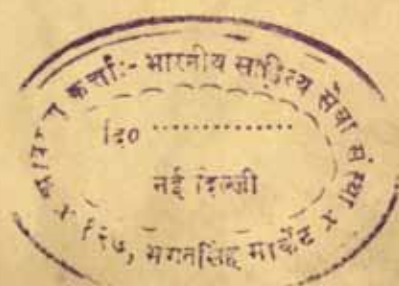 कर्त्ता:- भारतीय साहित्य सेवा संस्था ×
दि० ..............
नई दिल्ली
× १२७, भगतसिंह मार्केट ×